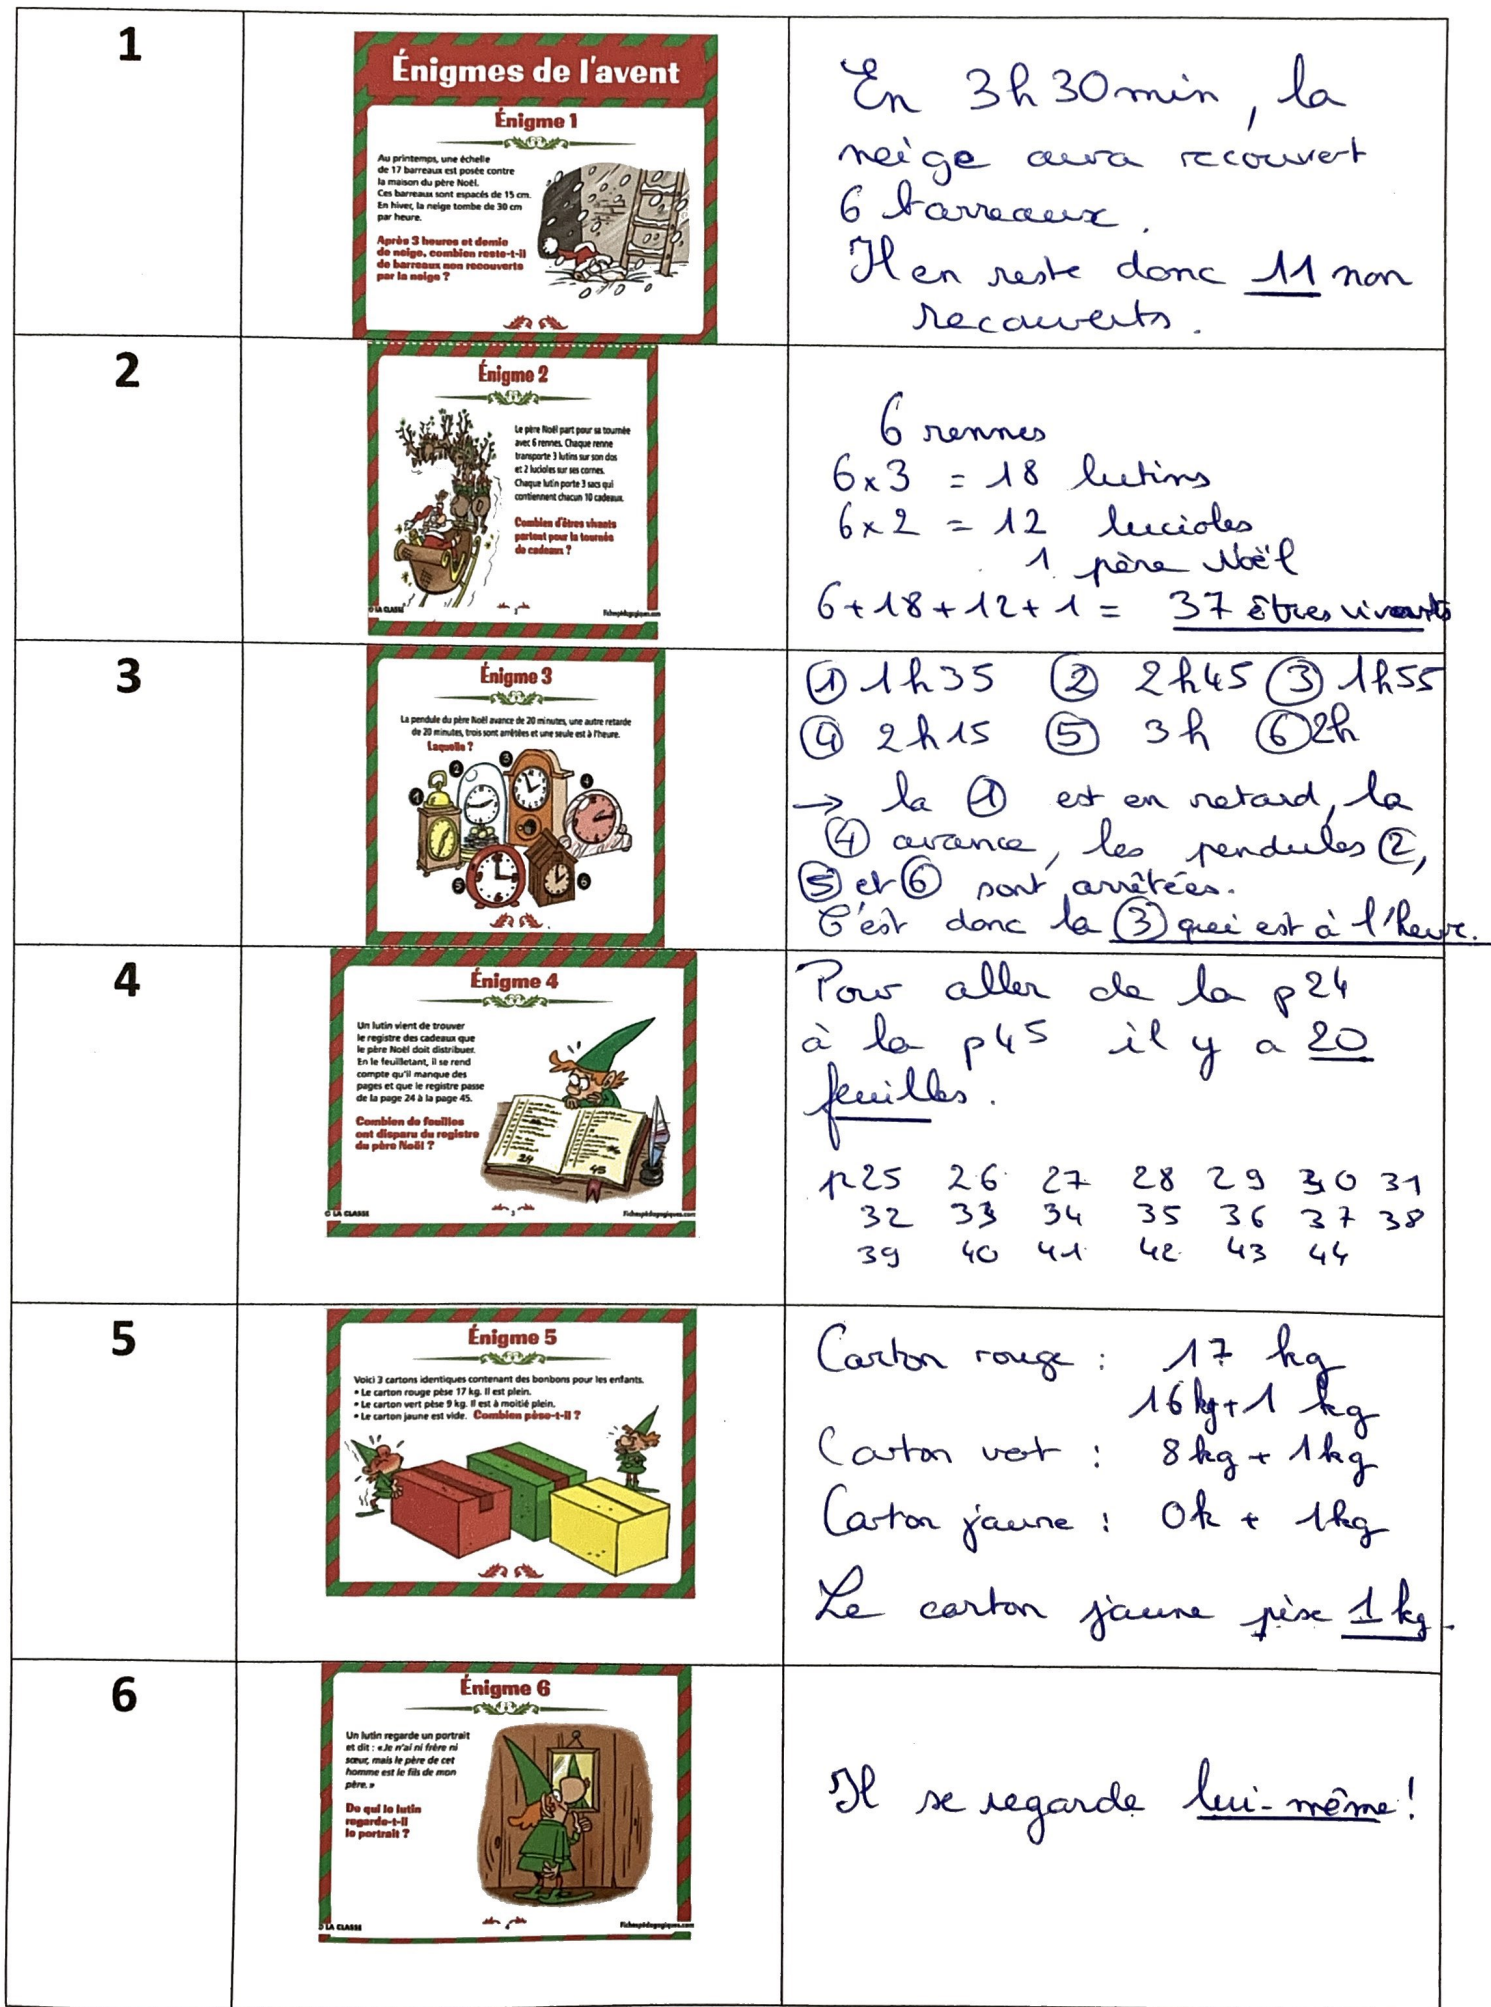 1
Énigmes de l'avent
Énigme 1
Au printemps, une échelle
de 17 barreaux est posée contre
la maison du père Noël.
Ces barreaux sont espacés de 15 cm.
En hiver, la neige tombe de 30 cm
par heure.
Après 3 heures et demie
de neige, combien reste-t-il
de barreaux non recouverts
par la neige ?
En 3h30min, la
neige aura recouvert
6 barreaux.
Il en reste donc 11 non
recouverts.
2
Énigme 2
Le père Noël part pour sa tournée
avec 6 rennes. Chaque renne
transporte 3 lutins sur son dos
et 2 lucioles sur ses cornes.
Chaque lutin porte 3 sacs qui
contiennent chacun 10 cadeaux.
Combien d'êtres vivants
partent pour la tournée
de cadeaux ?
© LA CLASSE
Fichespédagogiques.com
6 rennes
6x3 = 18 lutins
6x2 = 12 lucioles
1 père Noël
6+18+12+1 = 37 êtres vivants
3
Énigme 3
La pendule du père Noël avance de 20 minutes, une autre retarde
de 20 minutes, trois sont arrêtées et une seule est à l'heure.
Laquelle ?
1
2
3
4
5
6
① 1h35 ② 2h45 ③ 1h55
④ 2h15 ⑤ 3h ⑥ 2h
→ la ① est en retard, la
④ avance, les pendules ②,
⑤ et ⑥ sont arrêtées.
C'est donc la ③ qui est à l'heure.
4
Énigme 4
Un lutin vient de trouver
le registre des cadeaux que
le père Noël doit distribuer.
En le feuilletant, il se rend
compte qu'il manque des
pages et que le registre passe
de la page 24 à la page 45.
Combien de feuilles
ont disparu du registre
du père Noël ?
24
45
© LA CLASSE
3
Fichespédagogiques.com
Pour aller de la p24
à la p45 il y a 20
feuilles.
p25 26 27 28 29 30 31
32 33 34 35 36 37 38
39 40 41 42 43 44
5
Énigme 5
Voici 3 cartons identiques contenant des bonbons pour les enfants.
• Le carton rouge pèse 17 kg. Il est plein.
• Le carton vert pèse 9 kg. Il est à moitié plein.
• Le carton jaune est vide. Combien pèse-t-il ?
Carton rouge : 17 kg
16kg+1 kg
Carton vert : 8kg + 1kg
Carton jaune : 0k + 1kg
Le carton jaune pèse 1 kg.
6
Énigme 6
Un lutin regarde un portrait
et dit : «Je n'ai ni frère ni
sœur, mais le père de cet
homme est le fils de mon
père. »
De qui le lutin
regarde-t-il
le portrait ?
© LA CLASSE
Fichespédagogiques.com
Il se regarde lui-même !